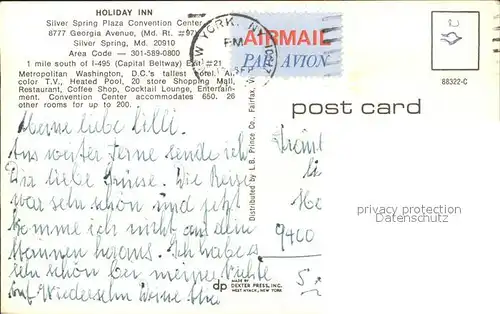 HOLIDAY INN
Silver Spring Plaza Convention Center
8777 Georgia Avenue, (Md. Rt. #97)
Silver Spring, Md. 20910
Area Code — 301-589-0800
1 mile south of I-495 (Capital Beltway) Exit #21
Metropolitan Washington, D.C.'s tallest hotel. All
color T.V., Heated Pool, 20 store Shopping Mall,
Restaurant, Coffee Shop, Cocktail Lounge, Entertain-
ment. Convention Center accommodates 650. 26
other rooms for up to 200.
NEW YORK, N.Y.
PM
SEP
AIRMAIL
PAR AVION
88322-C
post card
Distributed by L.B. Prince Co., Fairfax, Vi
Meine liebe Lilli.
Aus weiter Ferne sende ich
Dir liebe Grüsse. Die Reise
war sehr schön und jetzt
komme ich nicht aus dem
Staunen heraus. Ich habe es
sehr schön bei meiner Nichte
Auf Wiedersehn Deine
9400
dp
MADE BY
DEXTER PRESS, INC.
WEST NYACK, NEW YORK
privacy protection
Datenschutz: AK-Ansichtskarten.de